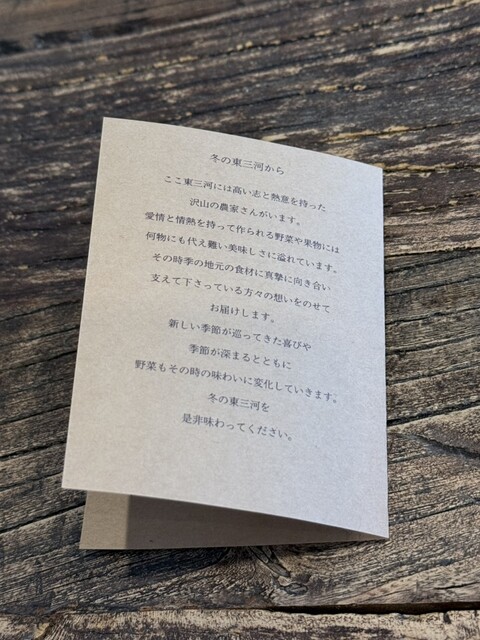 冬の東三河から
ここ東三河には高い志と熱意を持った
沢山の農家さんがいます。
愛情と情熱を持って作られる野菜や果物には
何物にも代え難い美味しさに溢れています。
その時季の地元の食材に真摯に向き合い
支えて下さっている方々の想いをのせて
お届けします。
新しい季節が巡ってきた喜びや
季節が深まるとともに
野菜もその時の味わいに変化していきます。
冬の東三河を
是非味わってください。